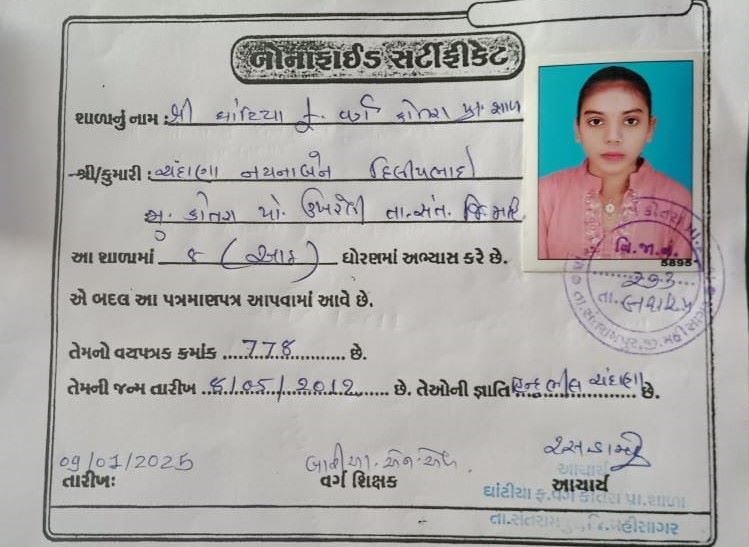 બોનાફાઈડ સર્ટીફીકેટ
શાળાનું નામ : શ્રી ઘાંટિયા ફ. વર્ગ કોતરા પ્રા. શાળા
શ્રી/કુમારી : ચંદાણા નયનાબેન દિલીપભાઈ
મુ. કોતરા પો. ઉખરેલી તા. સંત. જિ. મહિ
આ શાળામાં ૮ (આઠ) ધોરણમાં અભ્યાસ કરે છે.
એ બદલ આ પત્રમાણપત્ર આપવામાં આવે છે.
તેમનો વયપત્રક ક્રમાંક ..778.. છે.
તેમની જન્મ તારીખ ..8/05/2012.. છે. તેઓની જ્ઞાતિ હિન્દુ ભીલ ચંદાણા છે.
09/01/2025
તારીખઃ
બારીયા. એન. એલ.
વર્ગ શિક્ષક
આચાર્ય
આચાર્ય
ઘાંટીયા ફ.વર્ગ કોતરા પ્રા.શાળા
તા.સંતરામપુર, જિ.મહીસાગર
વિ.જા.નં.
5895
૨૭૩
તા.
તા.સંતરામપુર,જી.મહીસાગર